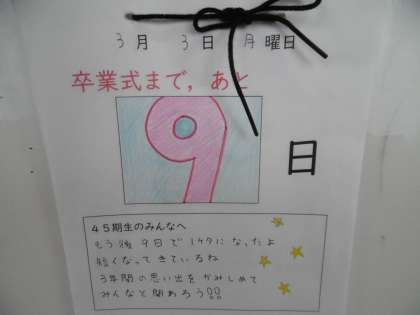 3月 3日 月曜日
卒業式まで，あと
9
日
45期生のみんなへ
もう後9日で1ケタになったよ
短くなってきているね
3年間の思い出をかみしめて
みんなと関わろう!!